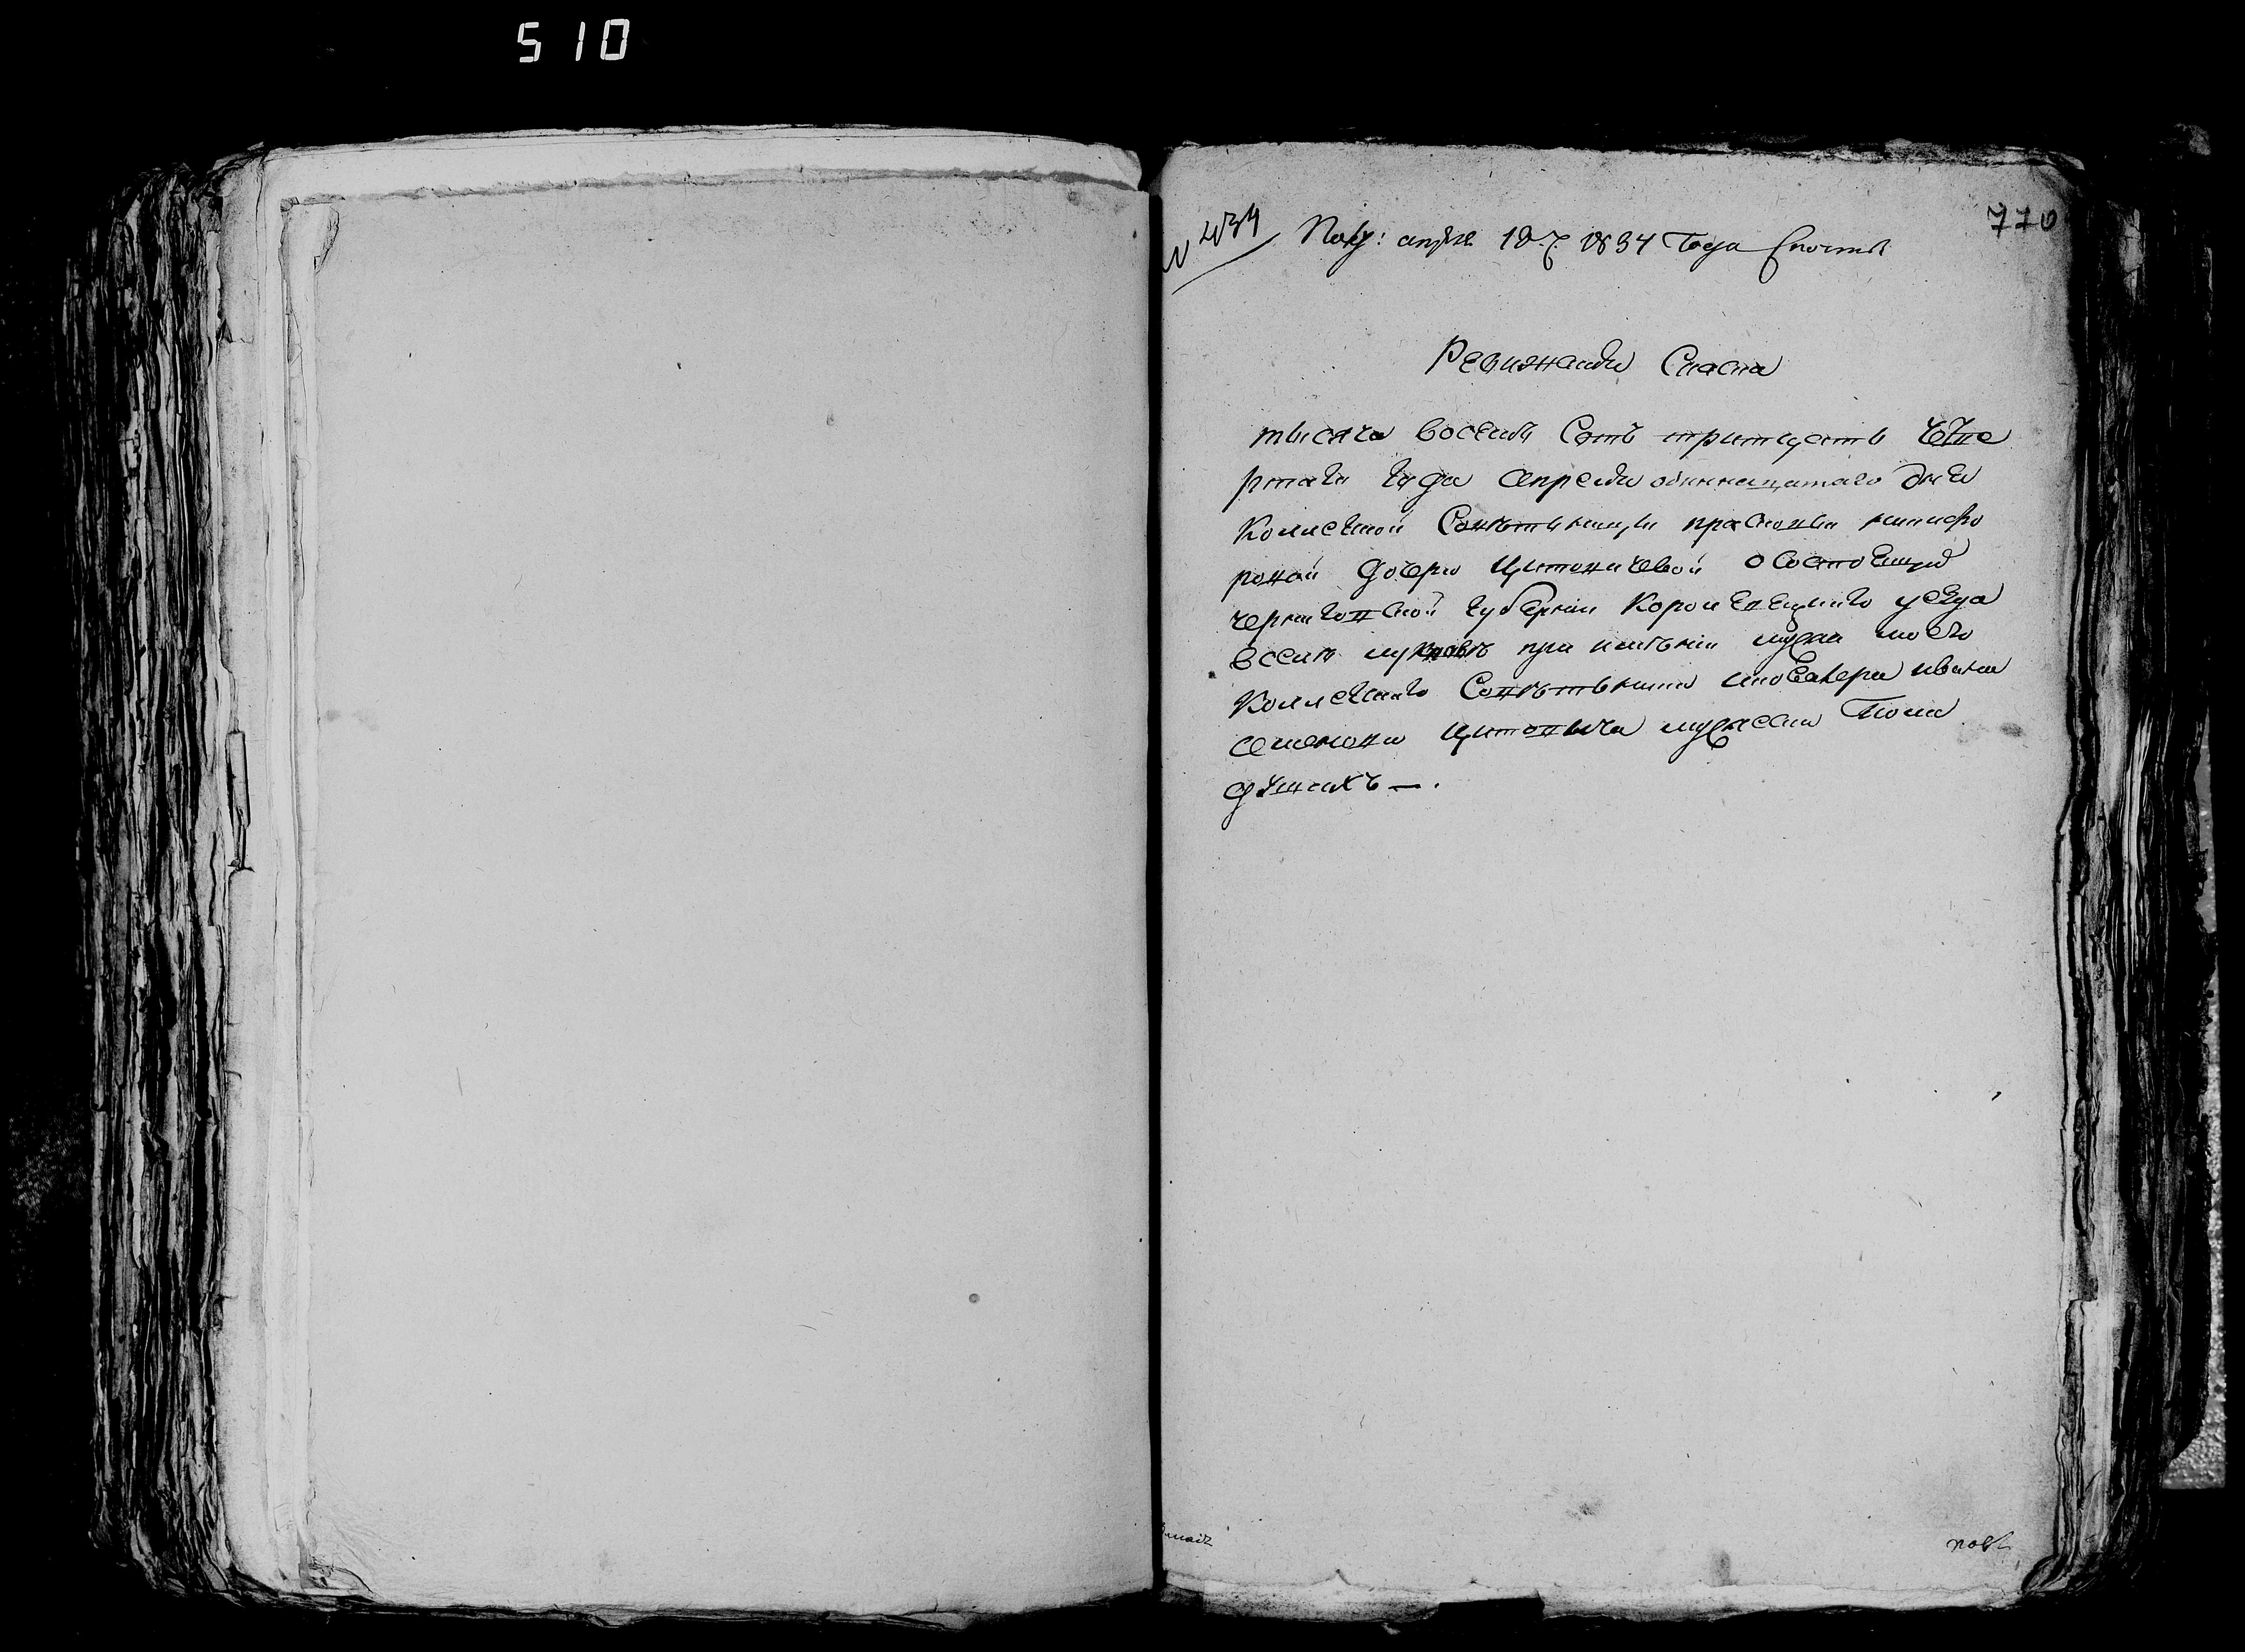 510
770
Полу: апреля 18 1834 года с почты
Ревижская Скаска
тысяча восемь Сотъ тритцать Четве
ртаго года апреля одиннацатаго дня
Коллежкой Советьницы прасковьи никифо
ровой дочери Цитовичевой о Состоящих
черниговской губернии Королевецкаго уезда
в селе при имении мужа моего
Коллежкаго Советьника и кавалера ивана
семенова Цитовича мужеска Пола
душахъ —.